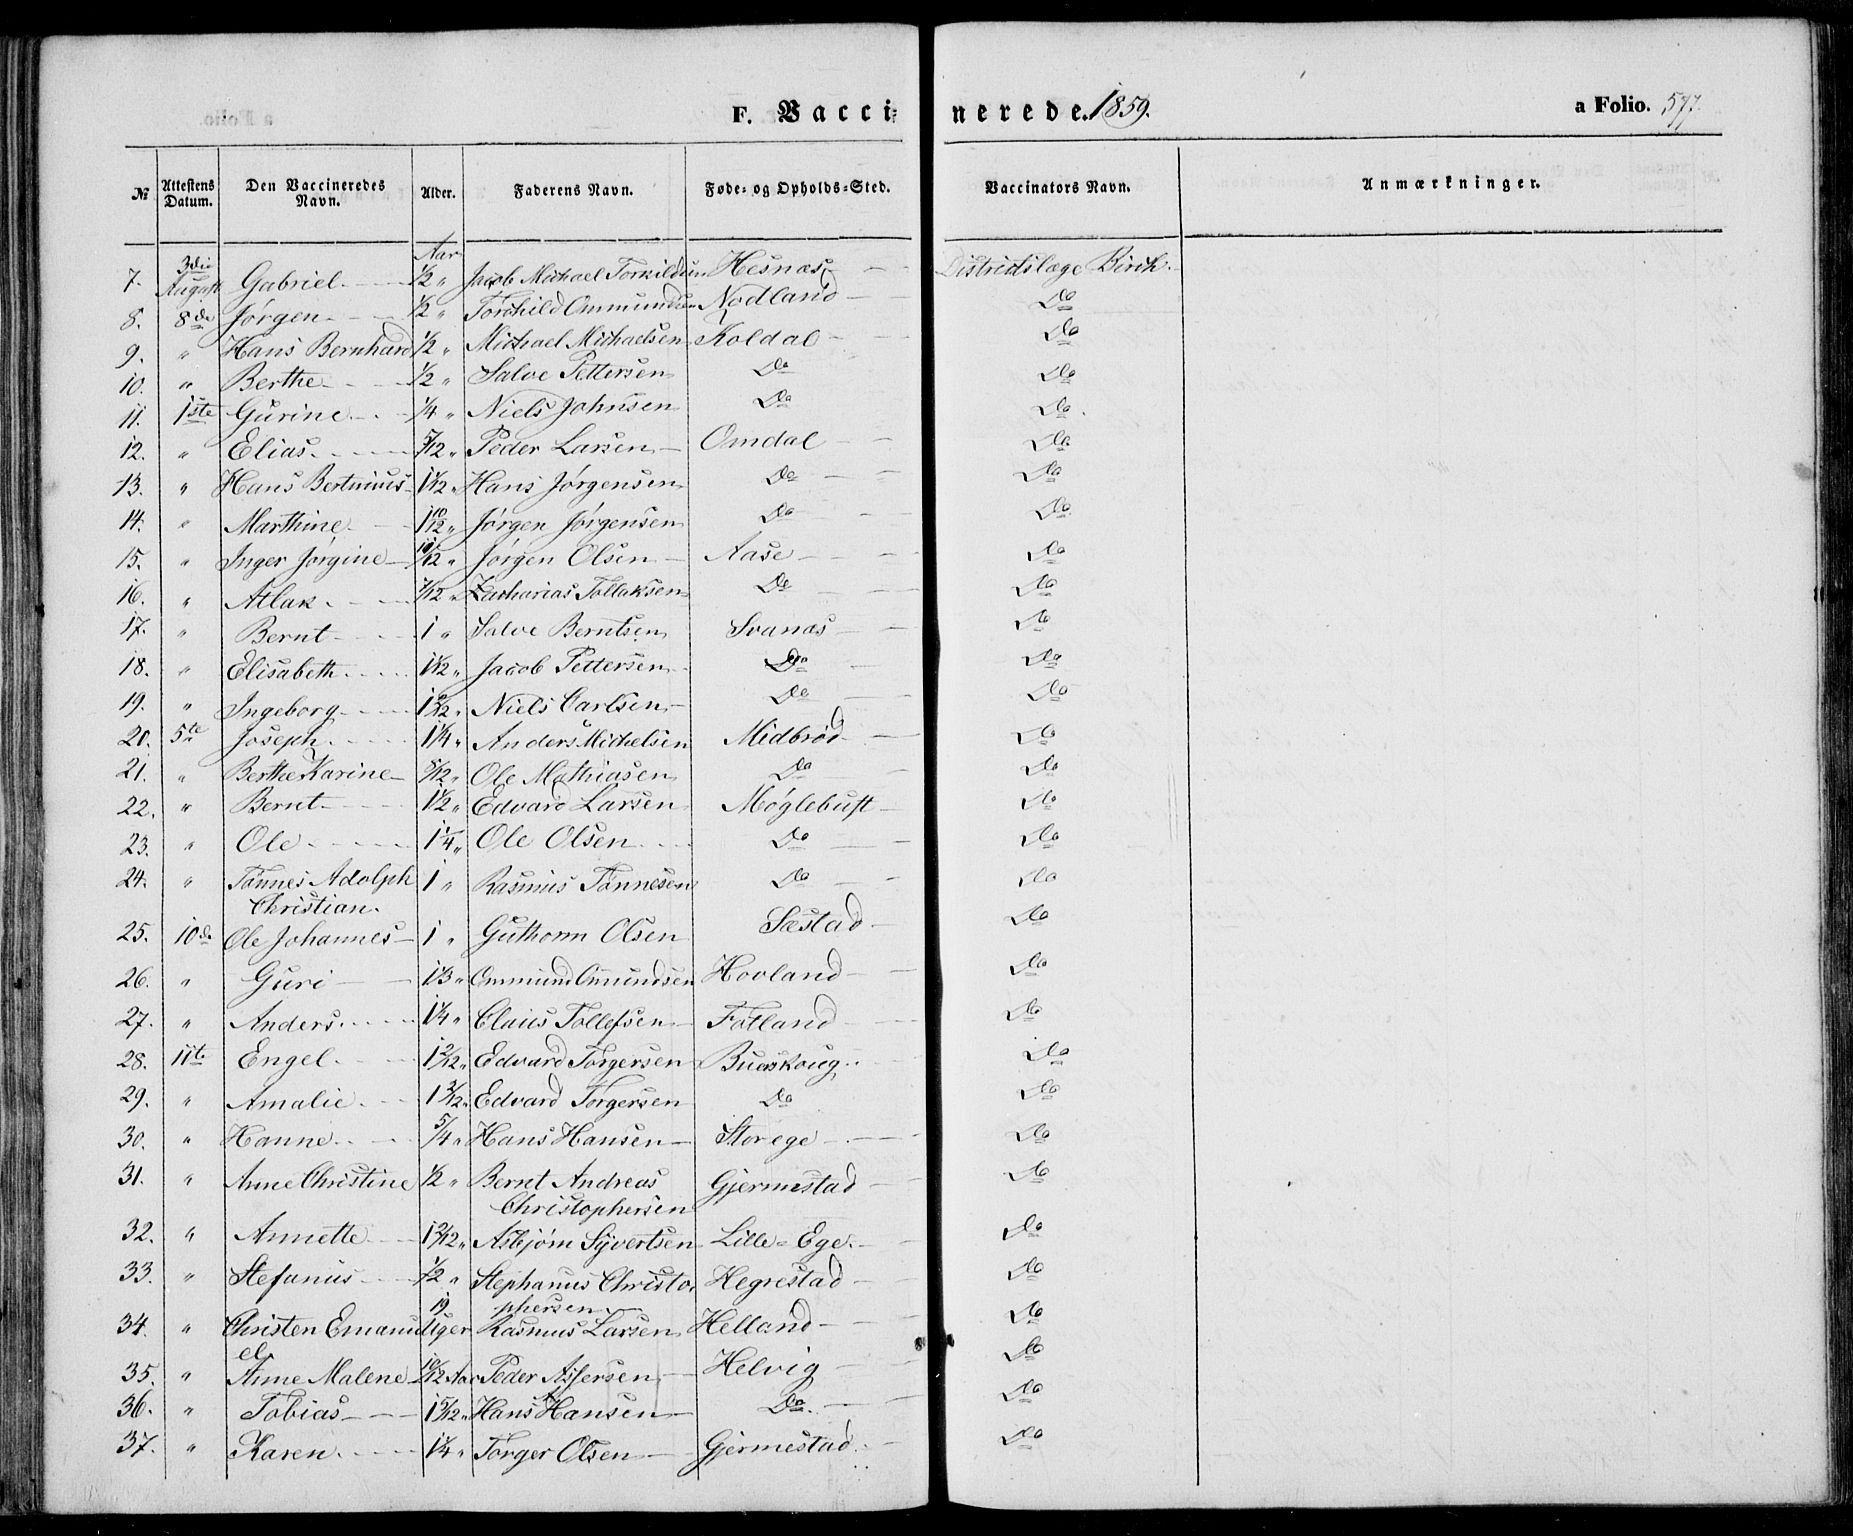 F. Vacci-nerede. 1859. a Folio. 577.
№ Attestens Datum. Den Vaccineredes Navn. Alder. Faderens Navn. Føde- og Opholds-Sted. Vaccinators Navn. Anmærkninger.
7. 3die August Gabriel Aar 1/2 " Jacob Michael Torkildsen Hesnæs Districtslæge Birch.
8. 8de Jørgen 1/2 " Torchild Ommundsen Nodland Do
9. " Hans Bernhard 1/2 " Michael Michaelsen Koldal Do
10. " Berthe 1/2 " Salve Pettersen Do Do
11. 1ste Gurine 1/4 " Niels Johnsen Do Do.
12. " Elias 7/12 " Peder Larsen Omdal Do
13. " Hans Bertinius 1 1/12 " Hans Jørgensen Do Do
14. " Marthine 1 10/12 " Jørgen Jørgensen Do Do
15. " Inger Jørgine 10/12 " Jørgen Olsen Aase Do
16. " Atlak 7/12 " Zacharias Tollaksen Do Do
17. " Bernt 1 " Salve Berntsen Svanæs Do
18. " Elisabeth 1 1/12 " Jacob Pettersen Do Do
19. " Ingeborg Niels Carlsen Do Do
20. 5te Joseph 1 1/4 " Anders Michelsen Midbrød Do
21. " Berthe Karine 8/12 " Ole Mathiasen Do Do
22. " Bernt 1 1/2 " Edvard Larsen Møglebust Do
23. " Ole 1 1/4 " Ole Olsen Do Do
24. " Tønnes Adolph 1 " Rasmus Tønnesen Do Do
Christian.
25. 10de Ole Johannes 1 " Guthorm Olsen Sæstad Do
26. " Guri 1 1/3 " Ommund Omundsen Hovland Do
27. " Anders 1 1/4 " Claus Tollefsen Fotland Do
28. 11te Engel 1 2/12 " Edvard Torgersen Buerskoug Do
29. " Amalie 1 2/12 " Edvard Torgersen Do Do
30. " Hanne 5/4 " Hans Hansen Storege Do
31. " Anne Christine 1/2 " Bernt Andreas Gjermestad Do
Christophersen
32. " Annette 1 2/12 " Asbjørn Syvertsen Lille-Ege Do
33. " Stefanus 1/2 " Stephanus Christo Hegrestad Do
phersen
34. " Christen Emanu 19 Uger Rasmus Larsen Helland Do
el
35. " Anne Malene 10/12 Aar Peder Assersen Helvig Do
36. " Tobias 1 5/12 " Hans Hansen Do Do
37. " Karen 1 1/4 " Torger Olsen Gjermestad Do